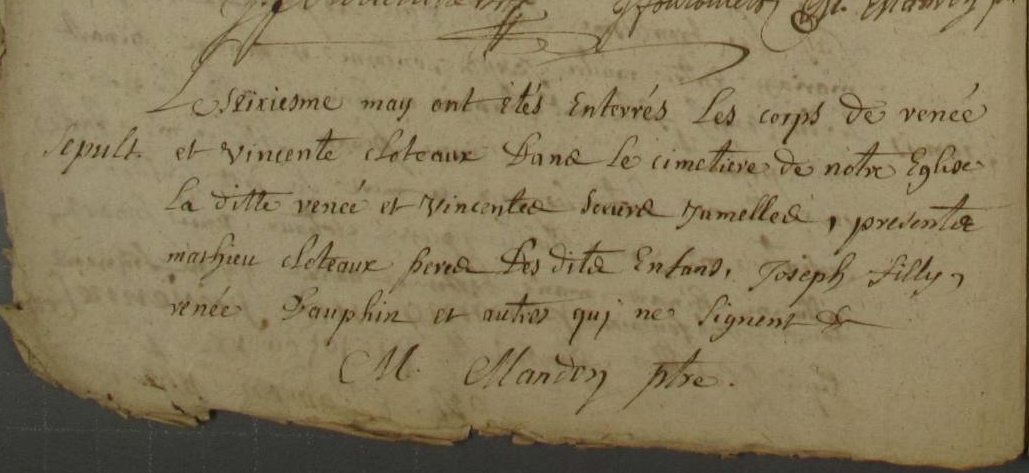 Le sixiesme may ont étés Enterrés Les corps de renée
sepult. et Vincente cloteaux Dans Le cimetiere de notre Eglise
La ditte renée et Vincentes soeurs Jumelles, presents
mathieu cloteaux peres Des dits Enfans, Joseph filly,
renée Dauphin et autres qui ne signent
M. Mandon ptre.